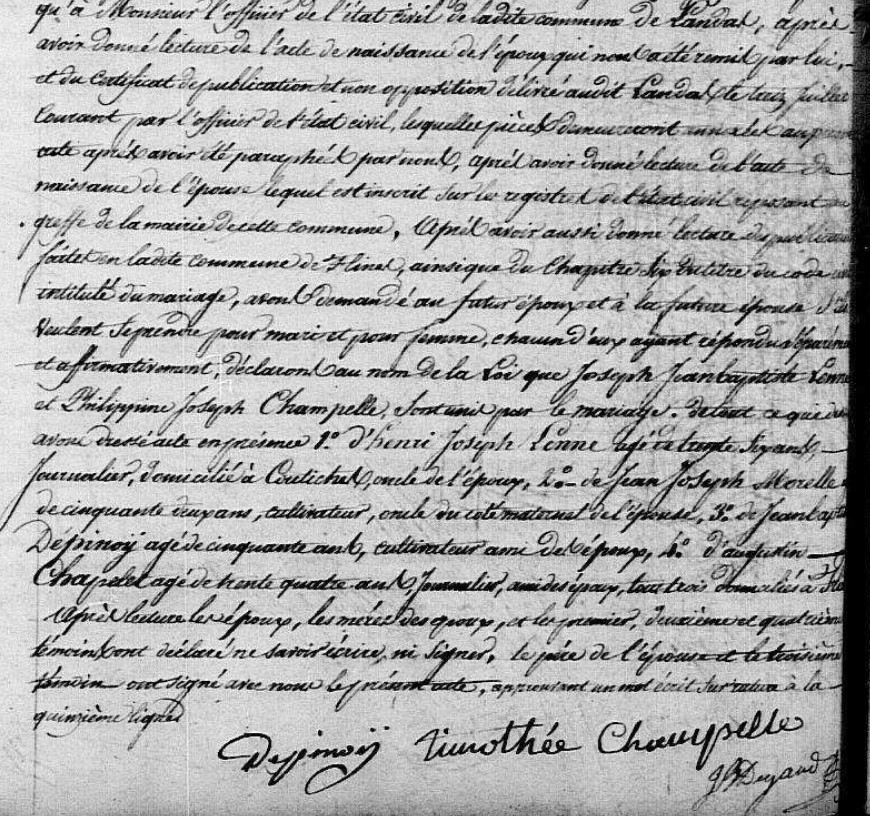 qu'à Monsieur l'officier de l'état civil de ladite commune de Landas, après
avoir donné lecture de l'acte de naissance de l'époux qui nous a été remit par lui,
et du certificat de publication et non opposition délivré audit Landas le treize Juillet
courant par l'officier de l'état civil, lesquelles pièces demeureront annexées au
acte après avoir été paraphées par nous, après avoir donné lecture de l'acte de
naissance de l'épouse lequel est inscrit sur les registres de l'état civil reposant au
greffe de la mairie de cette commune, Après avoir aussi donné lecture des publications
faites en ladite commune de Flines, ainsi que du Chapitre Six du titre du code civil
intitulé du mariage, avons demandé au futur époux et à la future épouse s'ils
veulent se prendre pour mari et pour femme, chacun d'eux ayant répondu séparément
et affirmativement, déclarons au nom de la Loi que Joseph Jeanbaptiste Lenne
et Philippine Joseph Champelle, sont unis par le mariage. de tout ce que
avons dressé acte en présence 1.° d'henri Joseph Lenne agé de trente six ans,
Journalier, domicilié à Coutiches, oncle de l'époux, 2.° de Jean Joseph Morelle
de cinquante deux ans, cultivateur, oncle du coté maternel de l'épouse, 3.° de Jean
Dépinoÿ agé de cinquante ans, cultivateur ami de l'époux, 4.° d'augustin
Chapelet agé de trente quatre ans, Journalier, ami des époux, tous trois domiciliés à
Après lecture les époux, les mères des époux, et les premier, deuxième et quatrième
témoins ont déclaré ne savoir écrire, ni signer, le père de l'épouse et le troisième
témoin ont signé avec nous le présent acte, approuvant un mot écrit sur rature à la
quinzième ligne
Depinoÿ Timothée Champelle